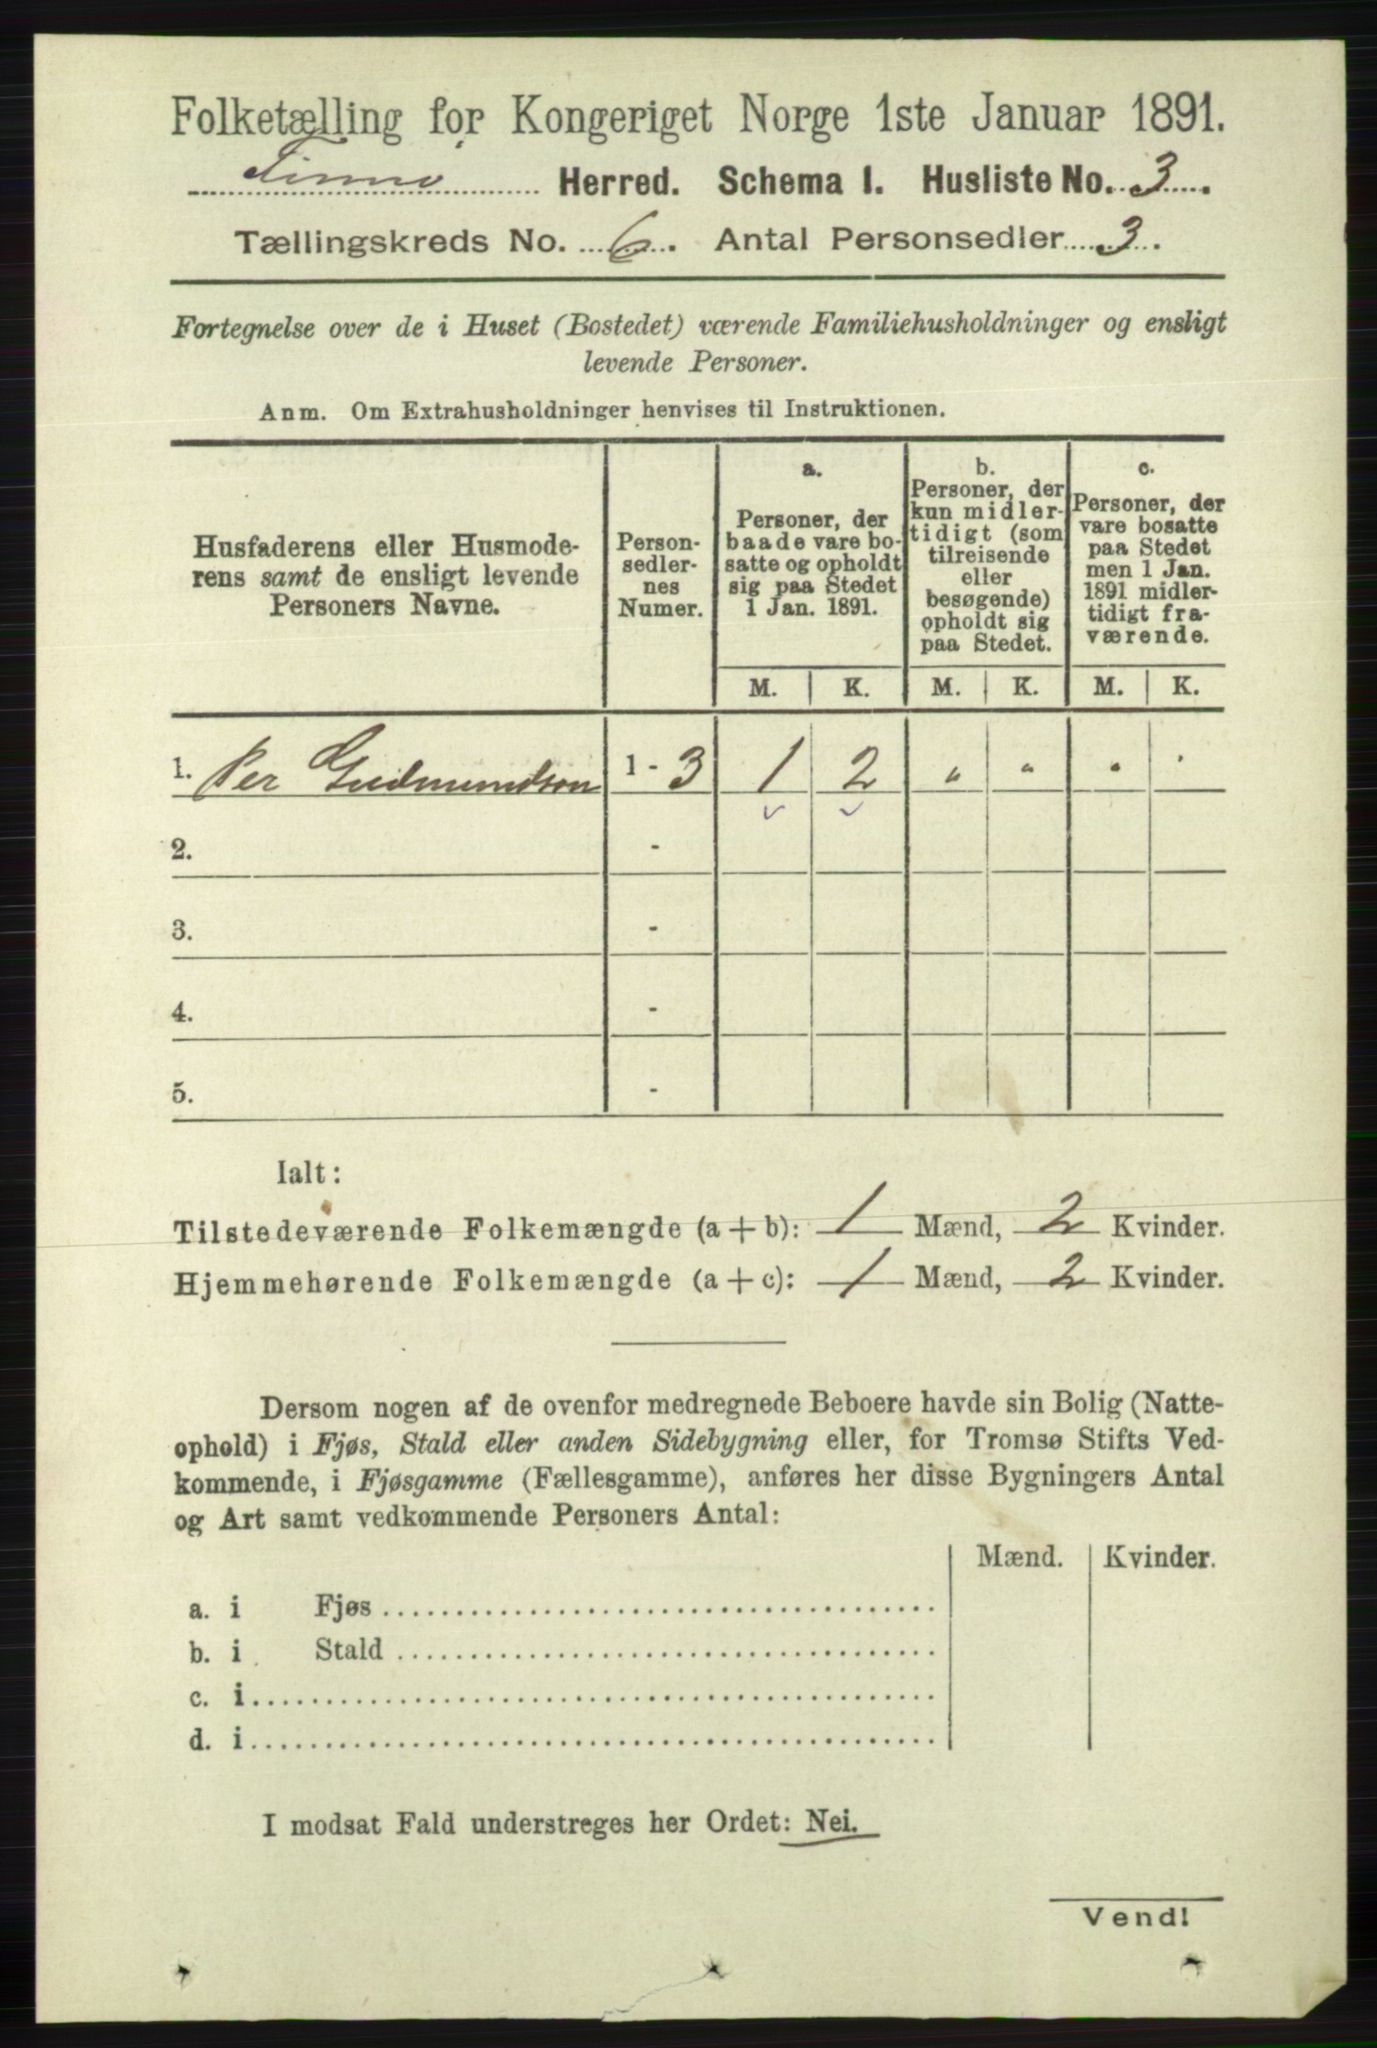 Folketælling for Kongeriget Norge 1ste Januar 1891.
Herred. Schema I. Husliste No. 3.
Tællingskreds No. 6. Antal Personsedler 3.
Fortegnelse over de i Huset (Bostedet) værende Familiehusholdninger og ensligt
levende Personer.
Anm. Om Extrahusholdninger henvises til Instruktionen.
Husfaderens eller Husmode-
rens samt de ensligt levende
Personers Navne.
Person-
sedler-
nes
Numer.
a.
Personer, der
baade vare bo-
satte og opholdt
sig paa Stedet
1 Jan. 1891.
b.
Personer, der
kun midler-
tidigt (som
tilreisende
eller
besøgende)
opholdt sig
paa Stedet.
c.
Personer, der
vare bosatte
paa Stedet
men 1 Jan.
1891 midler-
tidigt fra-
værende.
M. K. M. K. M. K.
1. Per Gudmundson 1 - 3 1 2 „ „ „ „
2. -
3. -
4. -
5. -
Ialt:
Tilstedeværende Folkemængde (a + b): 1 Mænd, 2 Kvinder.
Hjemmehørende Folkemængde (a + c): 1 Mænd, 2 Kvinder.
Dersom nogen af de ovenfor medregnede Beboere havde sin Bolig (Natte-
ophold) i Fjøs, Stald eller anden Sidebygning eller, for Tromsø Stifts Ved-
kommende, i Fjøsgamme (Fællesgamme), anføres her disse Bygningers Antal
og Art samt vedkommende Personers Antal:
Mænd. Kvinder.
a. i Fjøs
b. i Stald
c. i
d. i
I modsat Fald understreges her Ordet: Nei.
Vend!